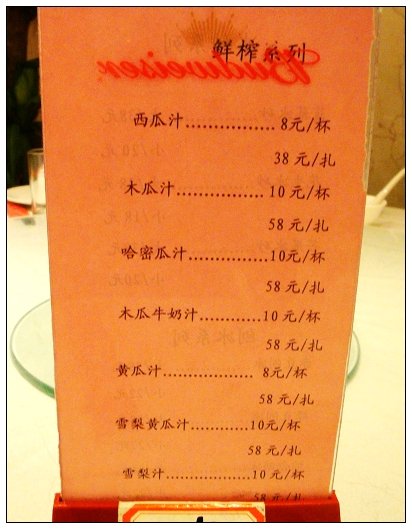 鲜榨系列
Budweiser
西瓜汁................ 8元/杯
38 元/扎
木瓜汁............... 10 元/杯
58 元/扎
哈密瓜汁...............10元/杯
58 元/扎
木瓜牛奶汁...........10 元/杯
58 元/扎
黄瓜汁................. 8元/杯
58 元/扎
雪梨黄瓜汁............10元/杯
58 元/扎
雪梨汁.................10 元/杯
58 元/扎